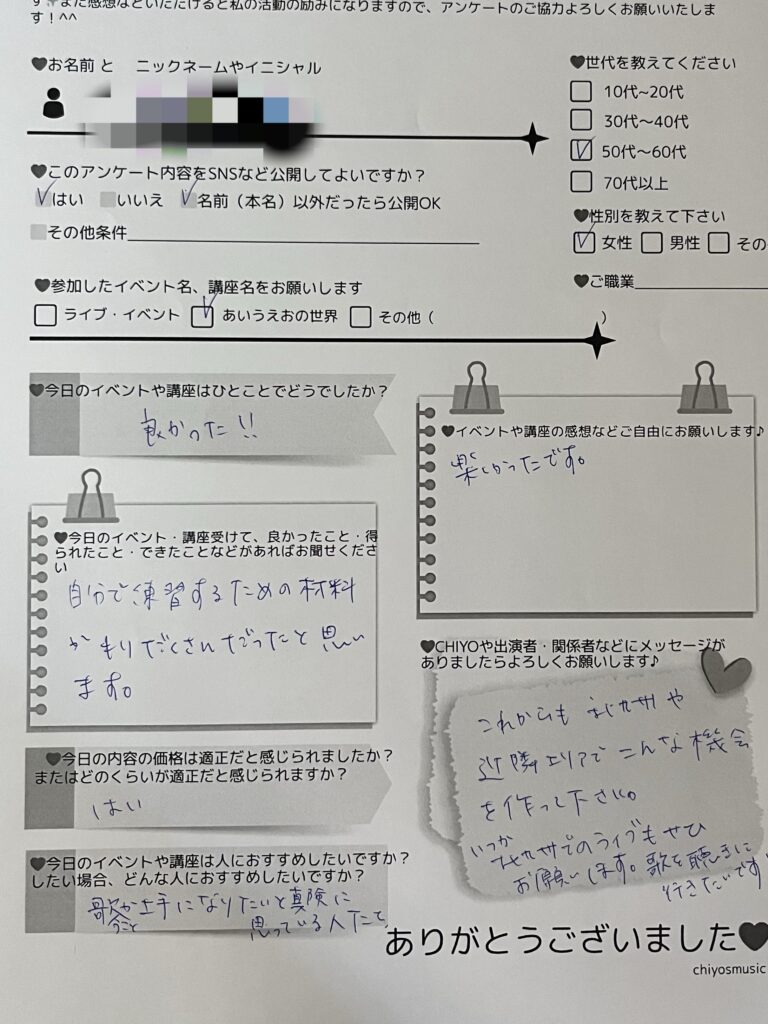 す また感想などいただけると私の活動の励みになりますので、アンケートのご協力よろしくお願いいたしま
す！^^
♥お名前 と ニックネームやイニシャル
♥世代を教えてください
10代~20代
30代〜40代
50代〜60代
70代以上
♥このアンケート内容をSNSなど公開してよいですか？
はい いいえ 名前（本名）以外だったら公開OK
その他条件
♥性別を教えて下さい
女性 男性 その
♥ご職業
♥参加したイベント名、講座名をお願いします
ライブ・イベント あいうえおの世界 その他（ ）
♥今日のイベントや講座はひとことでどうでしたか？
良かった!!
♥イベントや講座の感想などご自由にお願いします♪
楽しかったです。
♥今日のイベント・講座受けて、良かったこと・得
られたこと・できたことなどがあればお聞せくださ
い
自分で練習するための材料
がもりだくさんだったと思い
ます。
♥CHIYOや出演者・関係者などにメッセージが
ありましたらよろしくお願いします♪
これからも 北九州や
近隣エリアでこんな機会
を作って下さい。
いつか
北九州でのライブもぜひ
お願いします。歌を聴きに
行きたいです
♥今日の内容の価格は適正だと感じられましたか？
またはどのくらいが適正だと感じられますか？
はい
♥今日のイベントや講座は人におすすめしたいですか？
したい場合、どんな人におすすめしたいですか？
歌が上手になりたいと真険に
うこと
思っている人たち
ありがとうございました♥
chiyosmusic